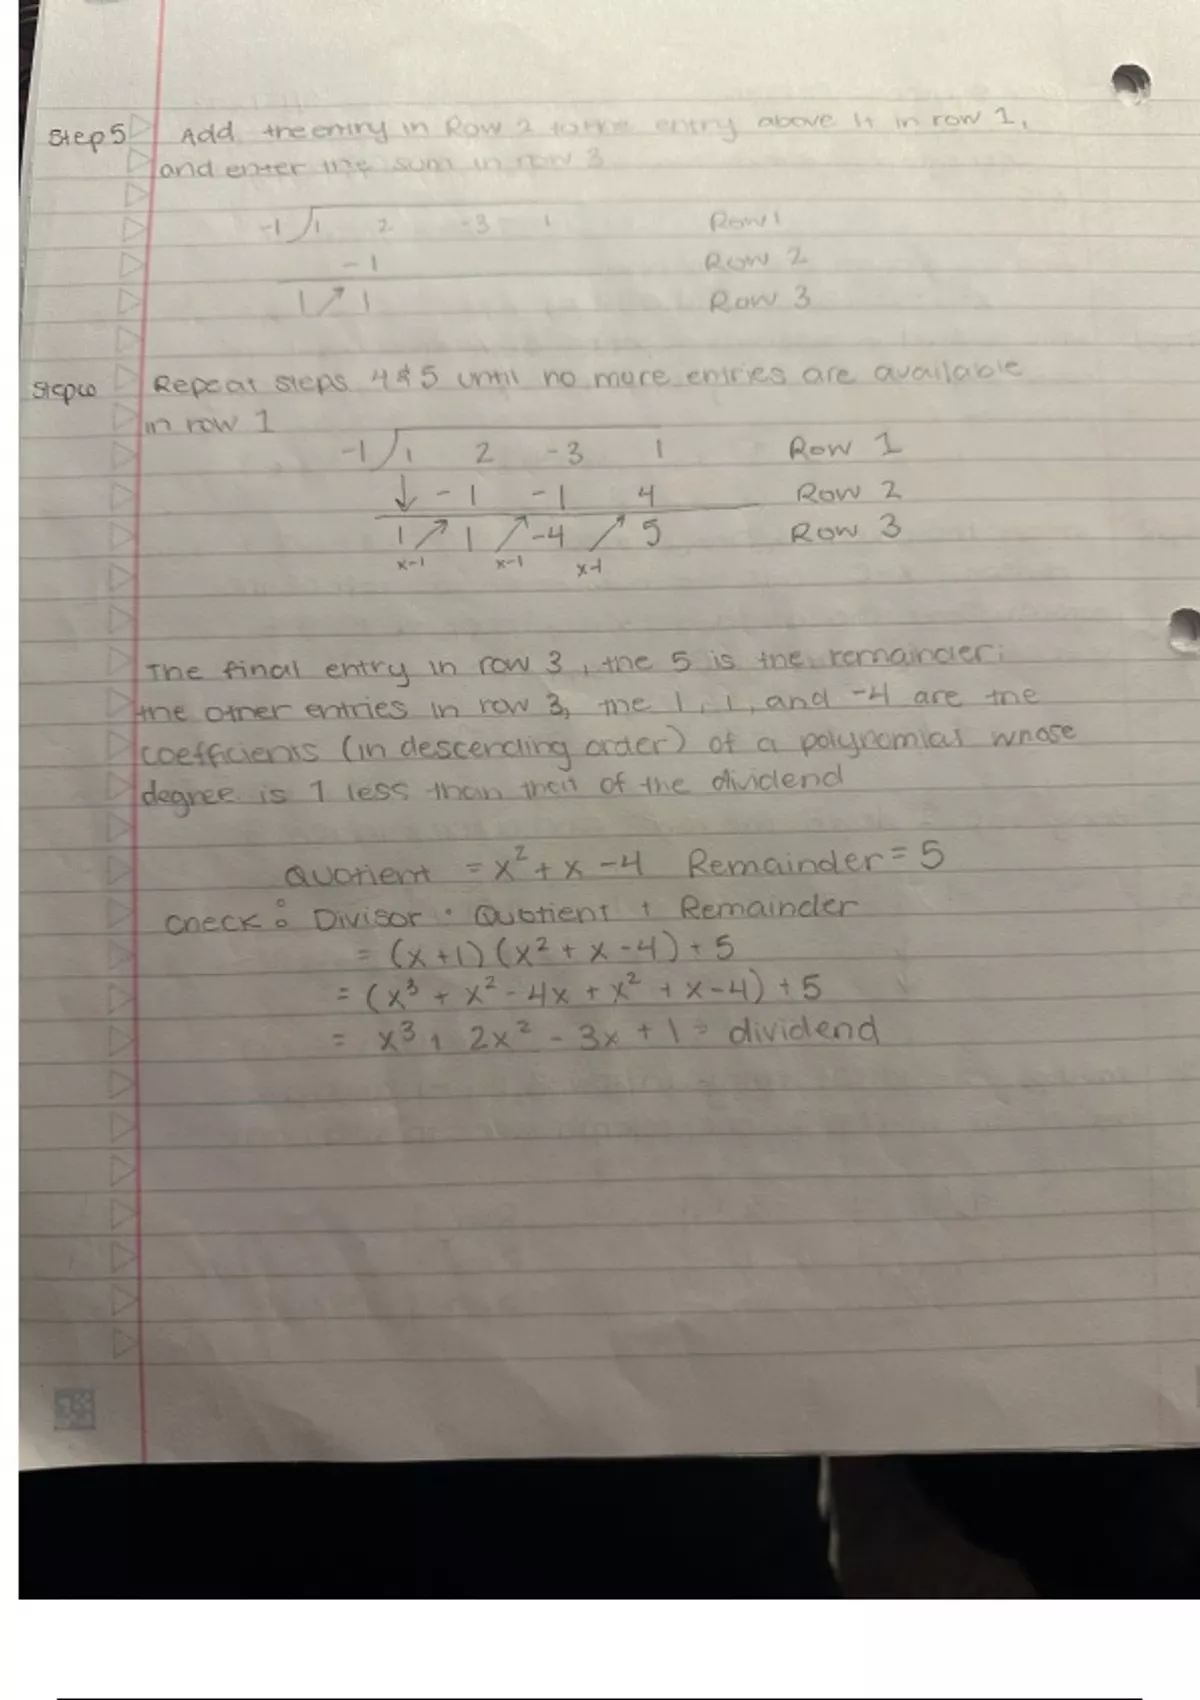 Step 5 Add the entry in Row 2 to the entry above it in row 1,
and enter the sum in row 3
-1 1 2 -3 1 Row 1
-1 Row 2
1 ↗ 1 Row 3
Step 6 Repeat steps 4 & 5 until no more entries are available
in row 1
-1 1 2 -3 1 Row 1
↓ -1 -1 4 Row 2
1 ↗ 1 ↗ -4 ↗ 5 Row 3
x-1 x-1 x-1
The final entry in row 3, the 5 is the remainder;
the other entries in row 3, the 1, 1, and -4 are the
coefficients (in descending order) of a polynomial whose
degree is 1 less than that of the dividend
Quotient = x² + x - 4 Remainder = 5
Check: Divisor · Quotient + Remainder
= (x + 1) (x² + x - 4) + 5
= (x³ + x² - 4x + x² + x - 4) + 5
= x³ + 2x² - 3x + 1 = dividend